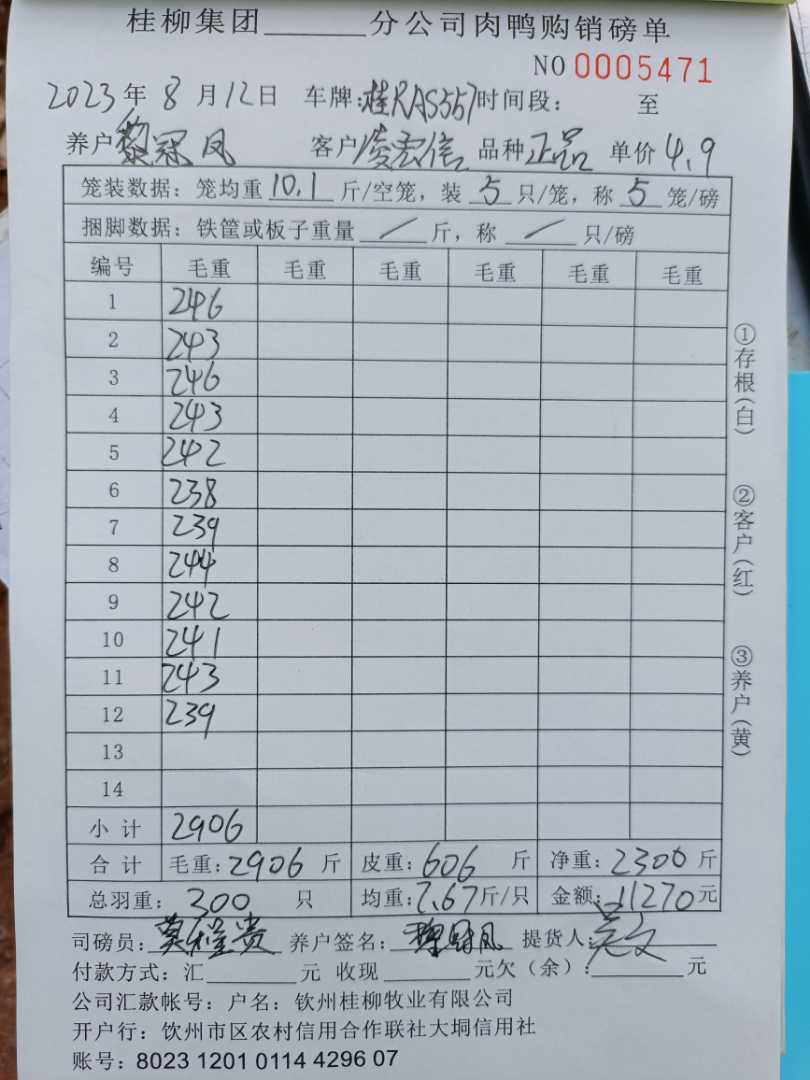 桂柳集团______分公司肉鸭购销磅单
NO 0005471
2023年 8 月 12日 车牌:桂RAS557 时间段: 至
养户 黎冠凤 客户 凌宏信 品种 正品 单价 4.9
笼装数据:笼均重 10.1 斤/空笼,装 5 只/笼,称 5 笼/磅
捆脚数据:铁筐或板子重量 / 斤,称 / 只/磅
编号 毛重 毛重 毛重 毛重 毛重 毛重
1 246
2 243
3 246
4 243
5 242
6 238
7 239
8 244
9 242
10 241
11 243
12 239
13
14
小计 2906
合计 毛重:2906 斤 皮重:606 斤 净重:2300 斤
总羽重: 300 只 均重:7.67斤/只 金额:11270元
司磅员: 莫 贵 养户签名: 凤 提货人:
付款方式:汇______元 收现______元欠(余):______元
公司汇款帐号:户名:钦州桂柳牧业有限公司
开户行:钦州市区农村信用合作联社大垌信用社
账号:8023 1201 0114 4296 07
①存根(白)
②客户(红)
③养户(黄)